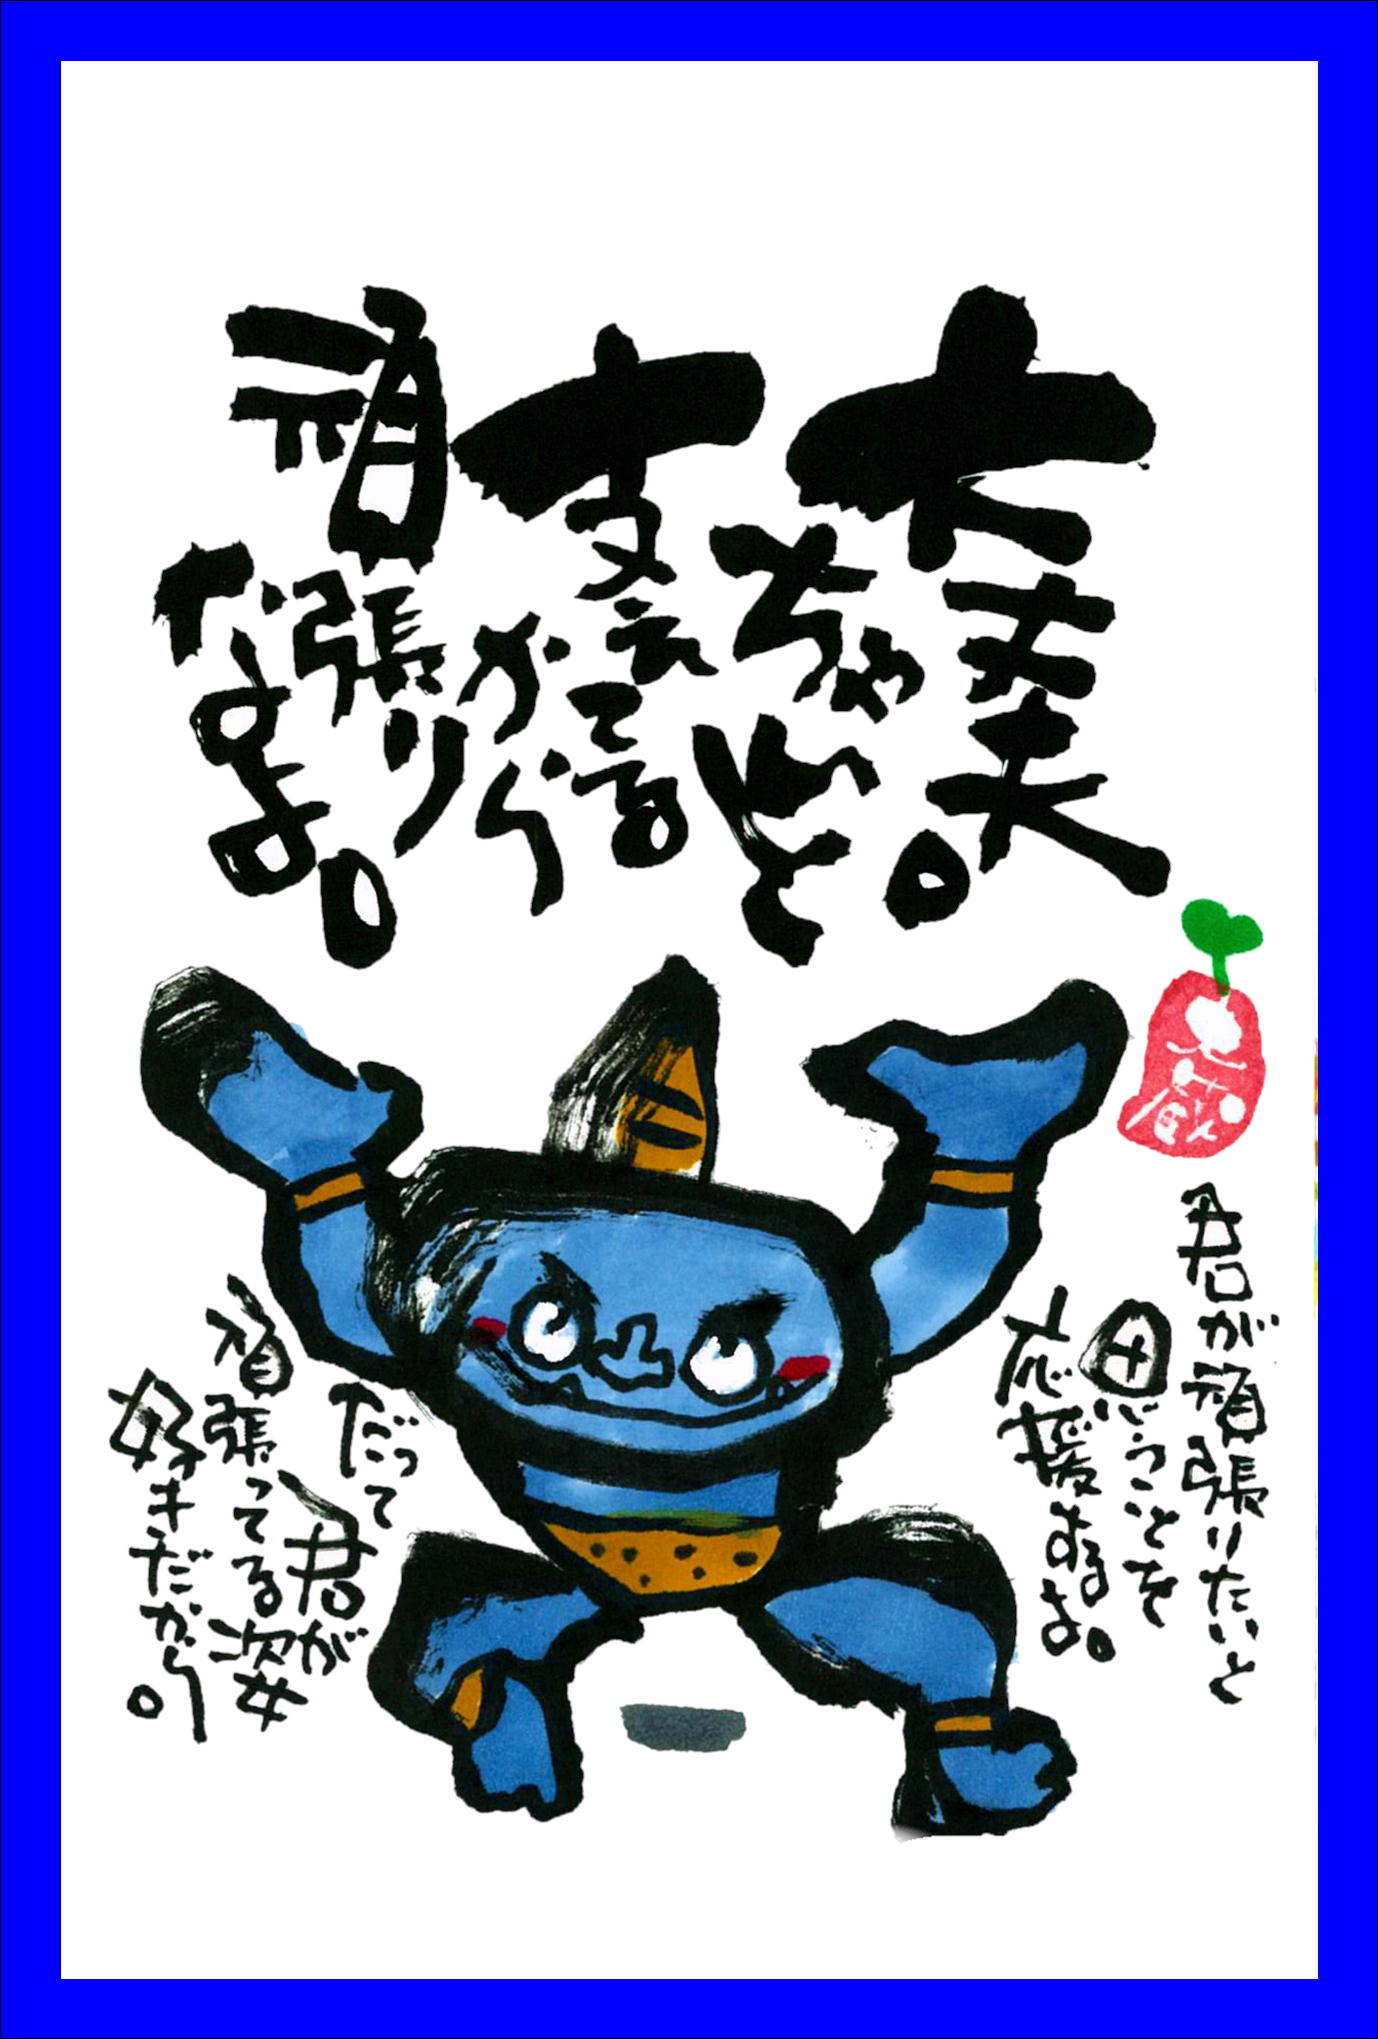 大丈夫。
ちゃんと
支えてる
から
頑張り
なよ。
君が頑張りたいと
思うことを
応援するよ。
だって
君が
頑張ってる姿
好きだから。